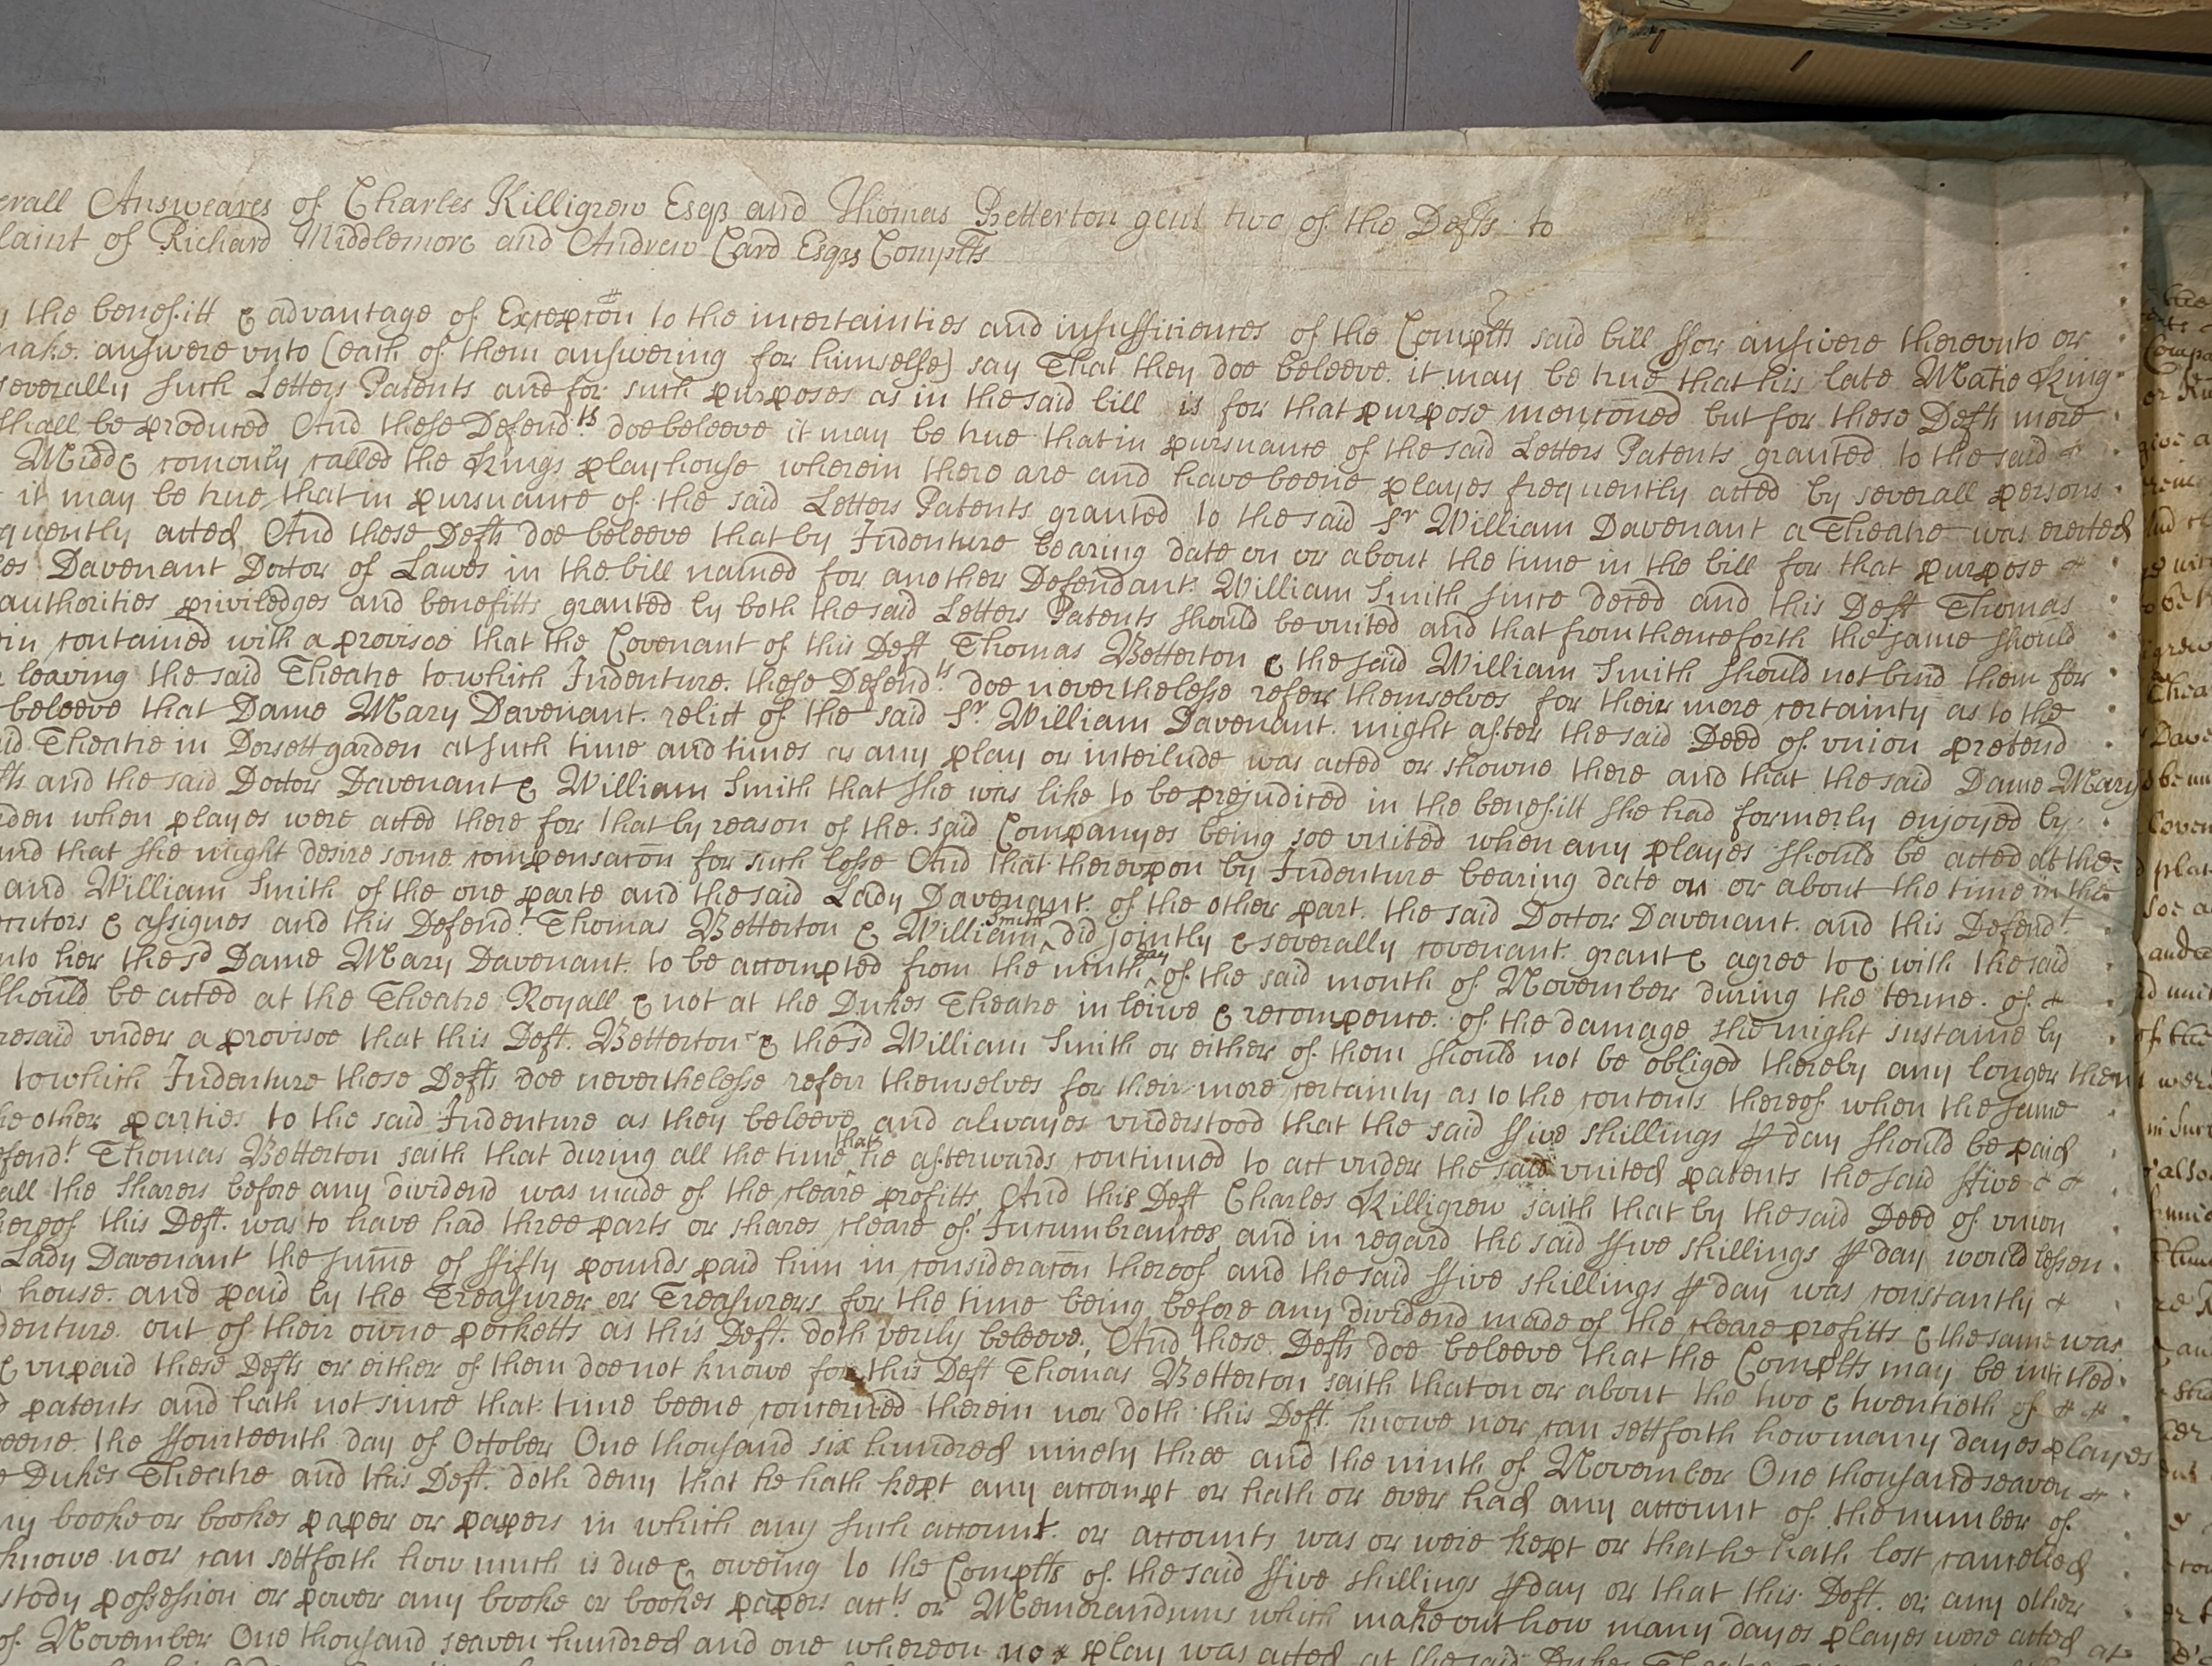 erall Answeares of Charles Killigrew Esqr and Thomas Betterton gent two of the Defts to
laint of Richard Middlemore and Andrew Card Esqrs Complts
the benefitt & advantage of Excepcōn to the incertainties and insufficiences of the Complts said bill ffor answere therevnto or
make answere vnto (each of them answering for himselfe) say That they doe beleeve it may be true that his late Matie King
severally such Letters Patents and for such purposes as in the said bill is for that purpose menconed but for these Defts more
shall be produced And these Defendts doe beleeve it may be true that in pursuance of the said Letters Patents granted to the said
Midd comonly called the Kings playhouse wherein there are and have beene playes frequently acted by severall persons
it may be true that in pursuance of the said Letters Patents granted to the said Sr William Davenant a Theatre was erected
quently acted And these Defts doe beleeve that by Indenture bearing date on or about the time in the bill for that purpose
es Davenant Doctor of Lawes in the bill named for another Defendant William Smith since deced and this Deft Thomas
authorities priviledges and benefitts granted by both the said Letters Patents should be vnited and that from thenceforth the same should
in contained with a provisoe that the Covenant of this Deft Thomas Betterton & the said William Smith should not bind them for
leaving the said Theatre to which Indenture these Defendts doe neverthelesse referr themselves for their more certainty as to the
beleeve that Dame Mary Davenant relict of the said Sr William Davenant might after the said Deed of vnion pretend
id Theatre in Dorsettgarden at such time and times as any play or interlude was acted or showne there and that the said Dame Mary
fts and the said Doctor Davenant & William Smith that she was like to be prejudiced in the benefitt she had formerly enjoyed by
rden when playes were acted there for that by reason of the said Companyes being soe vnited when any playes should be acted at the
and that she might desire some compensacōn for such losse And that therevpon by Indenture bearing date on or about the time in the
and William Smith of the one parte and the said Lady Davenant of the other part the said Doctor Davenant and this Defendt
cutors & assignes and this Defendt Thomas Betterton & William Smith did jointly & severally covenant grant & agree to & with the said
nto her the sd Dame Mary Davenant to be accompted from the ninth day of the said month of November during the terme of
should be acted at the Theatre Royall & not at the Dukes Theatre in leiwe & recompence of the damage she might sustaine by
resaid vnder a provisoe that this Deft Betterton & the sd William Smith or either of them should not be obliged thereby any longer then
to which Indenture these Defts doe neverthelesse referr themselves for their more certainty as to the contents thereof when the same
he other parties to the said Indenture as they beleeve and alwayes vnderstood that the said ffive shillings ꝑ day should be paid
efendt Thomas Betterton saith that during all the time that he afterwards continued to act vnder the said vnited patents the said ffive
all the sharers before any dividend was made of the cleare profitts And this Deft Charles Killigrew saith that by the said Deed of vnion
hereof this Deft was to have had three parts or shares cleare of Incumbrances and in regard the said ffive shillings ꝑ day would lessen
Lady Davenant the sume of ffifty pounds paid him in consideracōn thereof and the said ffive shillings ꝑ day was constantly
house and paid by the Treasurer or Treasurers for the time being before any dividend made of the cleare profitts & the same was
denture out of their owne pocketts as this Deft doth verily beleeve And these Defts doe beleeve that the Complts may be intitled
& vnpaid these Defts or either of them doe not knowe for this Deft Thomas Betterton saith that on or about the two & twentieth of
d patents and hath not since that time beene concerned therein nor doth this Deft knowe nor can settforth how many dayes playes
eene the ffourteenth day of October One thousand six hundred ninety three and the ninth of November One thousand seaven
e Dukes Theatre and this Deft doth deny that he hath kept any accompt or hath or ever had any account of the number of
ny booke or bookes paper or papers in which any such account or accounts was or were kept or that he hath lost cancelled
knowe nor can settforth how much is due & oweing to the Complts of the said ffive shillings ꝑ day or that this Deft or any other
stody possession or power any booke or bookes papers accts or Memorandums which make out how many dayes playes were acted at
of November One thousand seaven hundred and one whereon no play was acted at the said Dukes Theatre